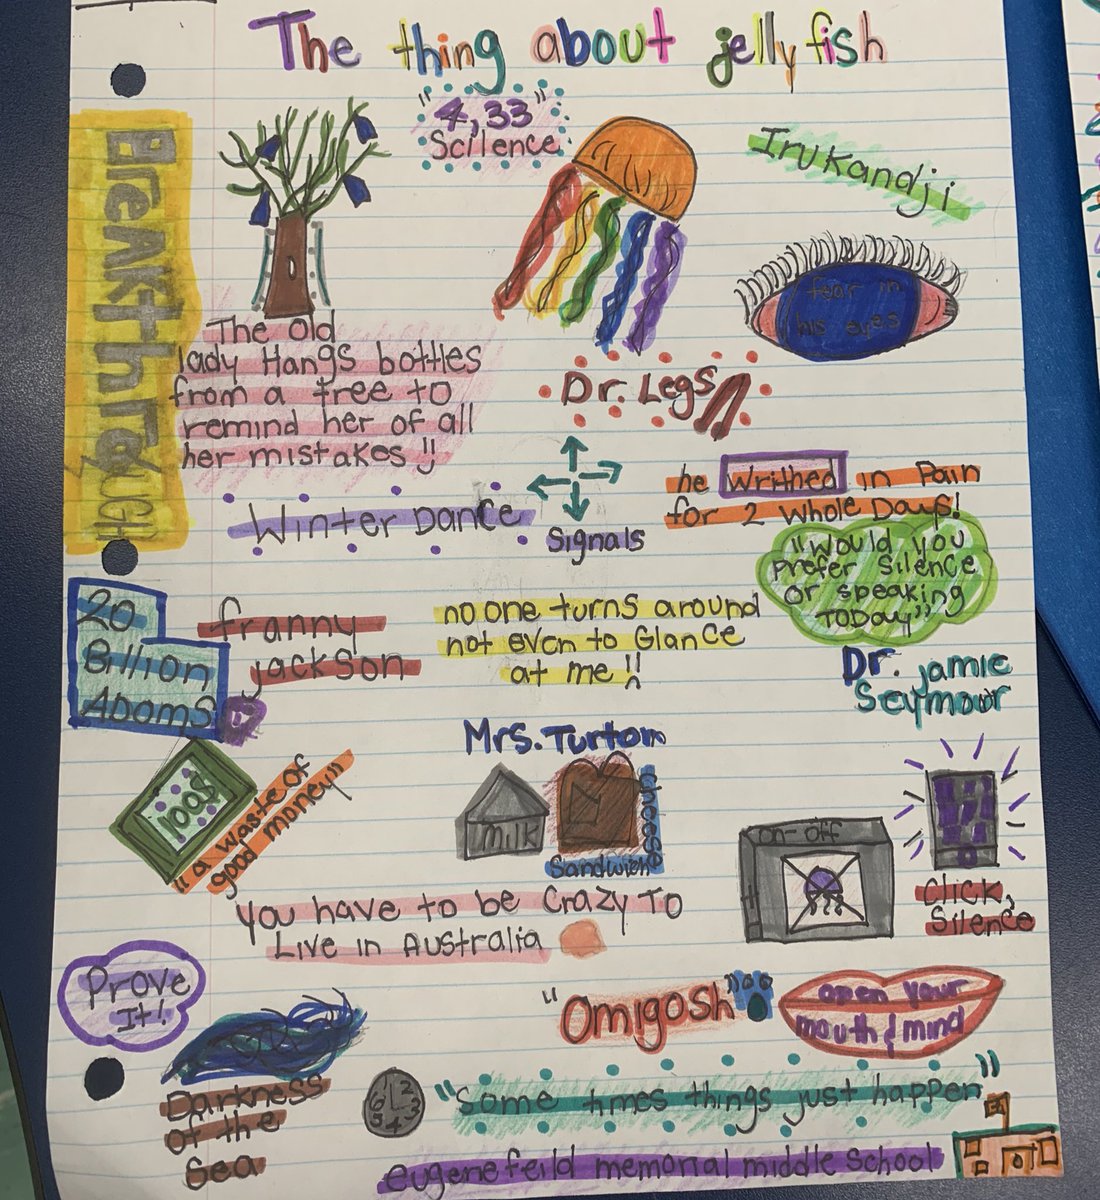 The thing about jellyfish
Breakthrough
"4,33"
Scilence
Irukandji
fear in
his eyes
The old
lady Hangs bottles
from a tree to
remind her of all
her mistakes !!
Dr. Legs
Winter Dance
Signals
he Writhed in Pain
for 2 whole Days!
"Would you
Prefer Silence
or speaking
TODAY"
20
Billion
Adoms
franny
jackson
no one turns around
not even to Glance
at me !!
Dr. jamie
Seymour
Mrs. Turton
100$
"a waste of
good money"
milk
cheese
Sandwich
on-off
Click,
Silence
you have to be Crazy To
Live in Australia
Prove
It!
"Omigosh"
open your
mouth & mind
Darkness
of the
Sea
12
6 3
5 4
"Some times things just happen"
eugene feild memorial middle school